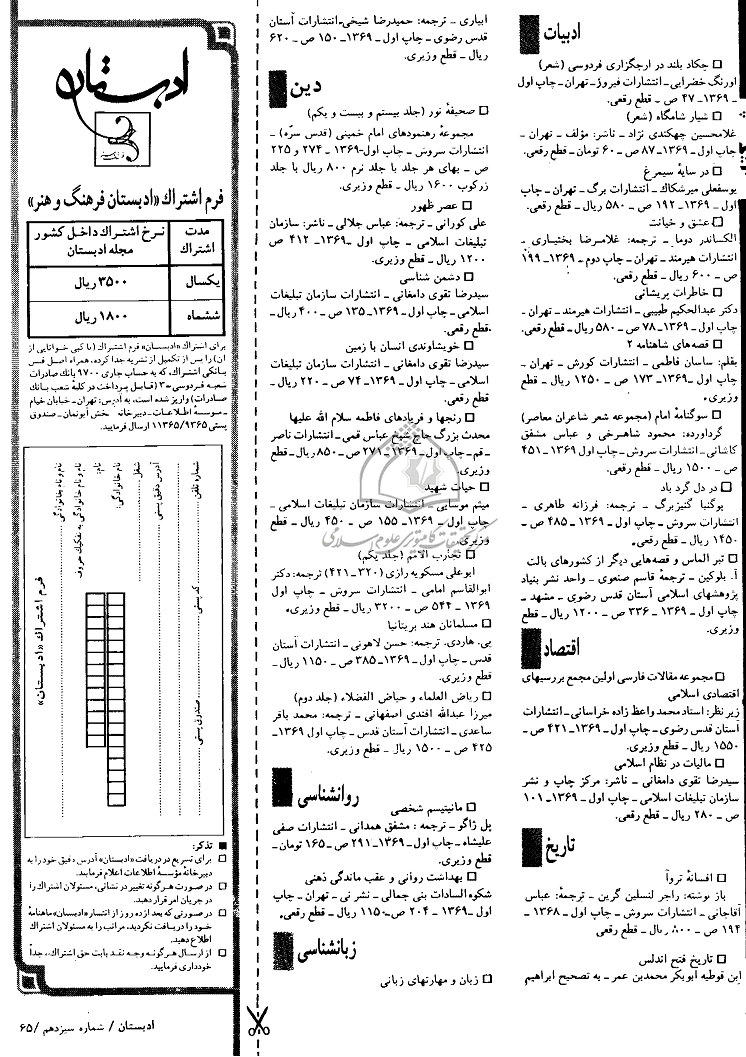 ادبیات
□ چکاد بلند در ارجگزاری فردوسی (شعر)
اورنگ خضرایی ـ انتشارات فیروز ـ تهران ـ چاپ اول
ـ ۱۳۶۹ـ ۴۷ ص ـ قطع رقعی.
□ شیار شامگاه (شعر)
غلامحسین چهکندی نژاد ـ ناشر: مؤلف ـ تهران ـ
چاپ اول ـ ۱۳۶۹ـ ۸۷ ص ـ ۶۰ تومان ـ قطع رقعی.
□ در سایهٔ سیمرغ
یوسفعلی میرشکاک ـ انتشارات برگ ـ تهران ـ چاپ
اول ـ ۱۳۶۹ـ ۱۹۲ ص ـ ۵۸۰ ریال ـ قطع رقعی.
□ عشق و خیانت
الکساندر دوما ـ ترجمه: غلامرضا بختیاری ـ
انتشارات هیرمند ـ تهران ـ چاپ دوم ـ ۱۳۶۹ـ ۱۹۹
ص ـ ۶۰۰ ریال ـ قطع رقعی.
□ خاطرات پریشانی
دکتر عبدالحکیم طبیبی ـ انتشارات هیرمند ـ تهران ـ
چاپ اول ـ ۱۳۶۹ـ ۷۸ ص ـ ۵۸۰ ریال ـ قطع رقعی.
□ قصه‌های شاهنامه ۲
بقلم: ساسان فاطمی ـ انتشارات کورش ـ تهران ـ
چاپ اول ـ ۱۳۶۹ـ ۱۷۳ ص ـ ۱۲۵۰ ریال ـ قطع
وزیری.
□ سوگنامهٔ امام (مجموعه شعر شاعران معاصر)
گرداورده: محمود شاهرخی و عباس مشفق
کاشانی ـ انتشارات سروش ـ چاپ اول ۱۳۶۹ـ ۴۵۱
ص ـ ۱۵۰۰ ریال ـ قطع رقعی.
□ در دل گرد باد
یوگنیا گنیزبرگ ـ ترجمه: فرزانه طاهری ـ
انتشارات سروش ـ چاپ اول ـ ۱۳۶۹ـ ۴۸۵ ص ـ
۱۴۵۰ ریال ـ قطع رقعی.
□ تبر الماس و قصه‌هایی دیگر از کشورهای بالت
آ. بلوکین ـ ترجمهٔ قاسم صنعوی ـ واحد نشر بنیاد
پژوهشهای اسلامی آستان قدس رضوی ـ مشهد ـ
چاپ اول ـ ۱۳۶۹ـ ۳۳۶ ص ـ ۱۲۰۰ ریال ـ قطع
وزیری.
اقتصاد
□ مجموعه مقالات فارسی اولین مجمع بررسیهای
اقتصادی اسلامی
زیر نظر: استاد محمد واعظ زاده خراسانی ـ انتشارات
آستان قدس رضوی ـ چاپ اول ـ ۱۳۶۹ـ ۴۲۱ ص ـ
۱۵۵۰ ریال ـ قطع وزیری.
□ مالیات در نظام اسلامی
سیدرضا تقوی دامغانی ـ ناشر: مرکز چاپ و نشر
سازمان تبلیغات اسلامی ـ چاپ اول ـ ۱۳۶۹ـ ۱۰۱
ص ـ ۲۸۰ ریال ـ قطع رقعی.
تاریخ
□ افسانهٔ تروا
باز نوشته: راجر لنسلین گرین ـ ترجمهٔ: عباس
آقاجانی ـ انتشارات سروش ـ چاپ اول ـ ۱۳۶۸ـ
۱۹۴ ص ـ ۸۰۰ ریال ـ قطع رقعی
□ تاریخ فتح اندلس
ابن قوطیه ابوبکر محمدبن عمر ـ به تصحیح ابراهیم
ابیاری ـ ترجمه: حمیدرضا شیخی ـ انتشارات آستان
قدس رضوی ـ چاپ اول ـ ۱۳۶۹ـ ۱۵۰ ص ـ ۶۲۰
ریال ـ قطع وزیری.
دین
□ صحیفهٔ نور (جلد بیستم و بیست و یکم)
مجموعهٔ رهنمودهای امام خمینی (قدس سرّه) ـ
انتشارات سروش ـ چاپ اول ـ ۱۳۶۹ـ ۲۷۴ و ۲۲۵
ص ـ بهای هر جلد با جلد نرم ۸۰۰ ریال با جلد
زرکوب ۱۶۰۰ ریال ـ قطع وزیری.
□ عصر ظهور
علی کورانی ـ ترجمه: عباس جلالی ـ ناشر: سازمان
تبلیغات اسلامی ـ چاپ اول ـ ۱۳۶۹ـ ۴۱۲ ص ـ
۱۲۰۰ ریال ـ قطع وزیری.
□ دشمن شناسی
سیدرضا تقوی دامغانی ـ انتشارات سازمان تبلیغات
اسلامی ـ چاپ اول ـ ۱۳۶۹ـ ۱۳۵ ص ـ ۴۰۰ ریال ـ
قطع رقعی.
□ خویشاوندی انسان با زمین
سیدرضا تقوی دامغانی ـ انتشارات سازمان تبلیغات
اسلامی ـ چاپ اول ـ ۱۳۶۹ـ ۷۴ ص ـ ۲۲۰ ریال ـ
قطع رقعی.
□ رنجها و فریادهای فاطمه سلام الله علیها
محدث بزرگ حاج شیخ عباس قمی ـ انتشارات ناصر
ـ قم ـ چاپ اول ـ ۱۳۶۹ـ ۲۷۱ ص ـ ۸۵۰ ریال ـ قطع
وزیری.
□ حیات شهید
میثم موسایی ـ انتشارات سازمان تبلیغات اسلامی ـ
چاپ اول ـ ۱۳۶۹ـ ۱۵۵ ص ـ ۴۵۰ ریال ـ قطع
وزیری.
□ تجارب الامم (جلد یکم)
ابوعلی مسکویه رازی (۳۲۰ـ ۴۲۱) ترجمه: دکتر
ابوالقاسم امامی ـ انتشارات سروش ـ چاپ اول
۱۳۶۹ـ ۵۴۴ ص ـ ۳۲۰۰ ریال ـ قطع وزیری.
□ مسلمانان هند بریتانیا
پی. هاردی. ترجمه: حسن لاهوتی ـ انتشارات آستان
قدس ـ چاپ اول ـ ۱۳۶۹ـ ۳۸۵ ص ـ ۱۱۵۰ ریال ـ
قطع وزیری.
□ ریاض العلماء و حیاض الفضلاء (جلد دوم)
میرزا عبدالله افندی اصفهانی ـ ترجمه: محمد باقر
ساعدی ـ انتشارات آستان قدس ـ چاپ اول ۱۳۶۹ـ
۴۲۵ ص ـ ۱۵۰۰ ریال ـ قطع وزیری.
روانشناسی
□ مانیتیسم شخصی
پل ژاگو ـ ترجمه : مشفق همدانی ـ انتشارات صفی
علیشاه ـ چاپ اول ـ ۱۳۶۹ـ ۲۹۱ ص ـ ۱۶۵ تومان ـ
قطع رقعی.
□ بهداشت روانی و عقب ماندگی ذهنی
شکوه السادات بنی جمالی ـ نشر نی ـ تهران ـ چاپ
اول ـ ۱۳۶۹ ـ ۲۰۴ ص ـ ۱۱۵۰ ریال ـ قطع رقعی.
زبانشناسی
□ زبان و مهارتهای زبانی
ادبستان
فرم اشتراک «ادبستان فرهنگ و هنر»
مدت اشتراک
نرخ اشتراک داخل کشور مجله ادبستان
یکسال
۳۵۰۰ ریال
ششماه
۱۸۰۰ ریال
برای اشتراک «ادبستان» فرم اشتراک (یا کپی خوانایی از
آن) را پس از تکمیل از نشریه جدا کرده، همراه اصل فیش
بانکی اشتراک، که به حساب جاری ۹۷۰۰ بانک صادرات
شعبه فردوسی ۳۰ (قابل پرداخت در کلیهٔ شعب بانک
صادرات) واریز شده است، به آدرس: تهران ـ خیابان خیام
ـ موسسهٔ اطلاعات ـ دبیرخانه ـ بخش آبونمان ـ صندوق
پستی ۱۱۳۶۵/۹۳۶۵ ارسال فرمایید.
فرم اشتراک «ادبستان»
نام و نام خانوادگی
نام و نام خانوادگی به تفکیک حروف
نام:
نام خانوادگی:
شغل
آدرس دقیق پستی
کد پستی
صندوق پستی
شماره تلفن
■ تذکر:
□ برای تسریع در دریافت «ادبستان» آدرس دقیق خود را به
دبیرخانهٔ مؤسسهٔ اطلاعات اعلام فرمایید.
□ در صورت هرگونه تغییر در نشانی، مسئولان اشتراک را
در جریان امر قرار دهید.
□ در صورتی که بعد از ده روز از انتشار «ادبستان» ماهنامهٔ
خود را دریافت نکردید، مراتب را به مسئولان اشتراک
اطلاع دهید.
□ از ارسال هرگونه وجه نقد بابت حق اشتراک، جداً
خودداری فرمایید.
ادبستان / شماره سیزدهم / ۶۵